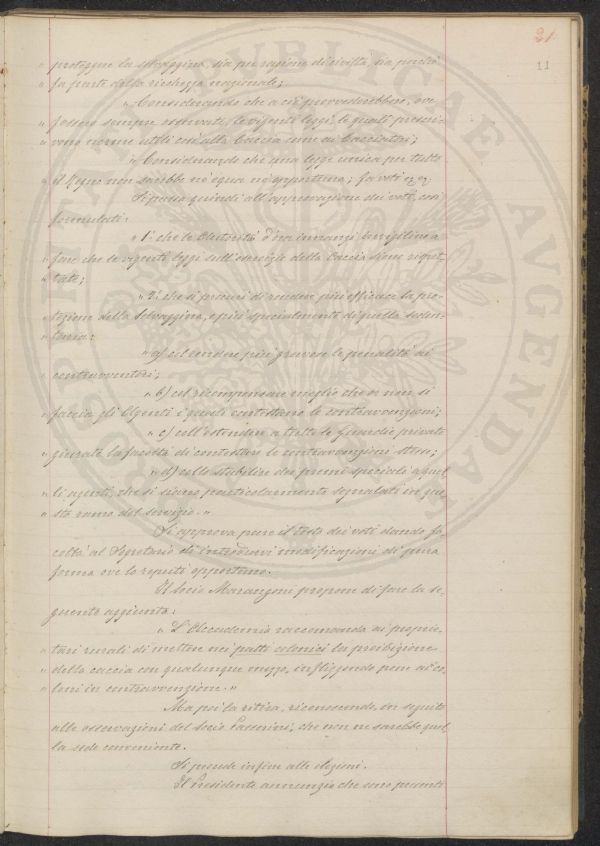 21
11
" proteggere la selvaggina, sia per ragione di civiltà, sia perchè
" fa parte della ricchezza nazionale;
" Considerando che a ciò provvederebbero, ove
" fossero sempre osservati, le vigenti leggi, le quali prescri-
" vono norme utili così alla Caccia come ai Cacciatori;
" Considerando che una legge unica per tutto
" il Regno non sarebbe nè equa nè opportuna; fa voti ecc.
Si passa quindi all'approvazione dei voti, così
formulati:
" 1º che le Autorità d'ora innanzi invigilino a
" fare che le vigenti leggi sull'esercizio della Caccia siano rispet-
" tate;
" 2º che si procuri di rendere più efficace la pro-
" tezione della Selvaggina, e più specialmente di quella seden-
" taria:
" a) col rendere più gravose le penalità ai
" contravventori;
" b) col ricompensare meglio che ora non si
" faccia gli Agenti i quali contestano le contravvenzioni;
" c) coll'estendere a tutte le Guardie private
" giurate la facoltà di contestare le contravvenzioni stesse;
" d) collo stabilire dei premi speciali a quel-
" li agenti, che si siano particolarmente segnalati in que-
" sto ramo del servizio. "
Si approva pure il testo dei voti dando fa-
coltà al Segretario di introdurvi modificazioni di pura
forma ove lo reputi opportuno.
Il Socio Marangoni propone di fare la se-
guente aggiunta:
" L'Accademia raccomanda ai proprie-
" tari rurali di mettere nei patti colonici la proibizione
" della caccia con qualunque mezzo, infliggendo pene ai co-
" loni in contravvenzione. "
Ma poi la ritira, riconoscendo, in seguito
alle osservazioni del Socio Passerini, che non ne sarebbe quel-
la sede conveniente.
Si procede infine alle elezioni.
Il Presidente annunzia che sono presenti